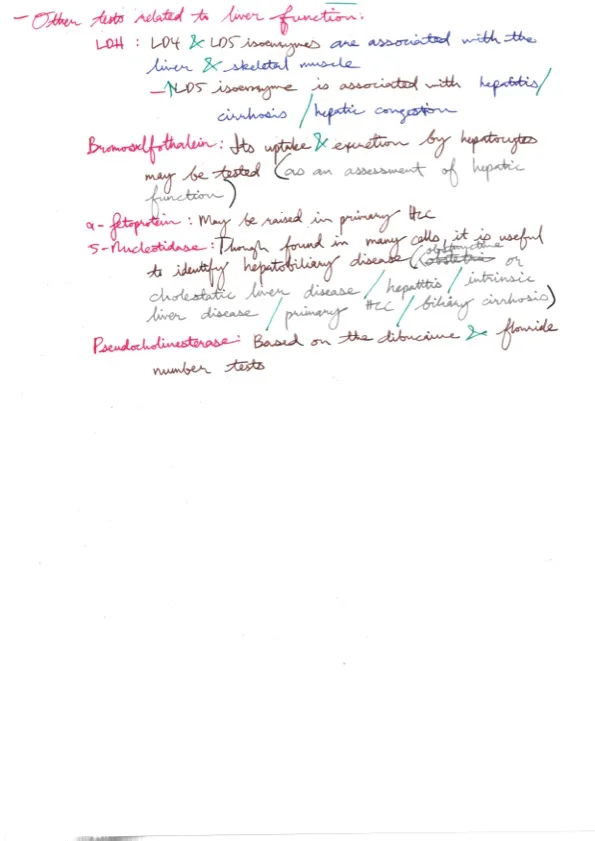 - Other tests related to liver function:
LDH : LD4 & LD5 isoenzymes are associated with the
liver & skeletal muscle
- ↑LD5 isoenzyme is associated with hepatitis/
cirrhosis / hepatic congestion
Bromosulfothalein : Its uptake & excretion by hepatocytes
may be tested (as an assessment of hepatic
function)
α-fetoprotein : May be raised in primary HCC
5-Nucleotidase : Though found in many cells, it is useful
to identify hepatobiliary disease (obstructive or
cholestatic liver disease / hepatitis / intrinsic
liver disease / primary HCC / biliary cirrhosis)
Pseudocholinesterase : Based on the dibucaine & flouride
number tests